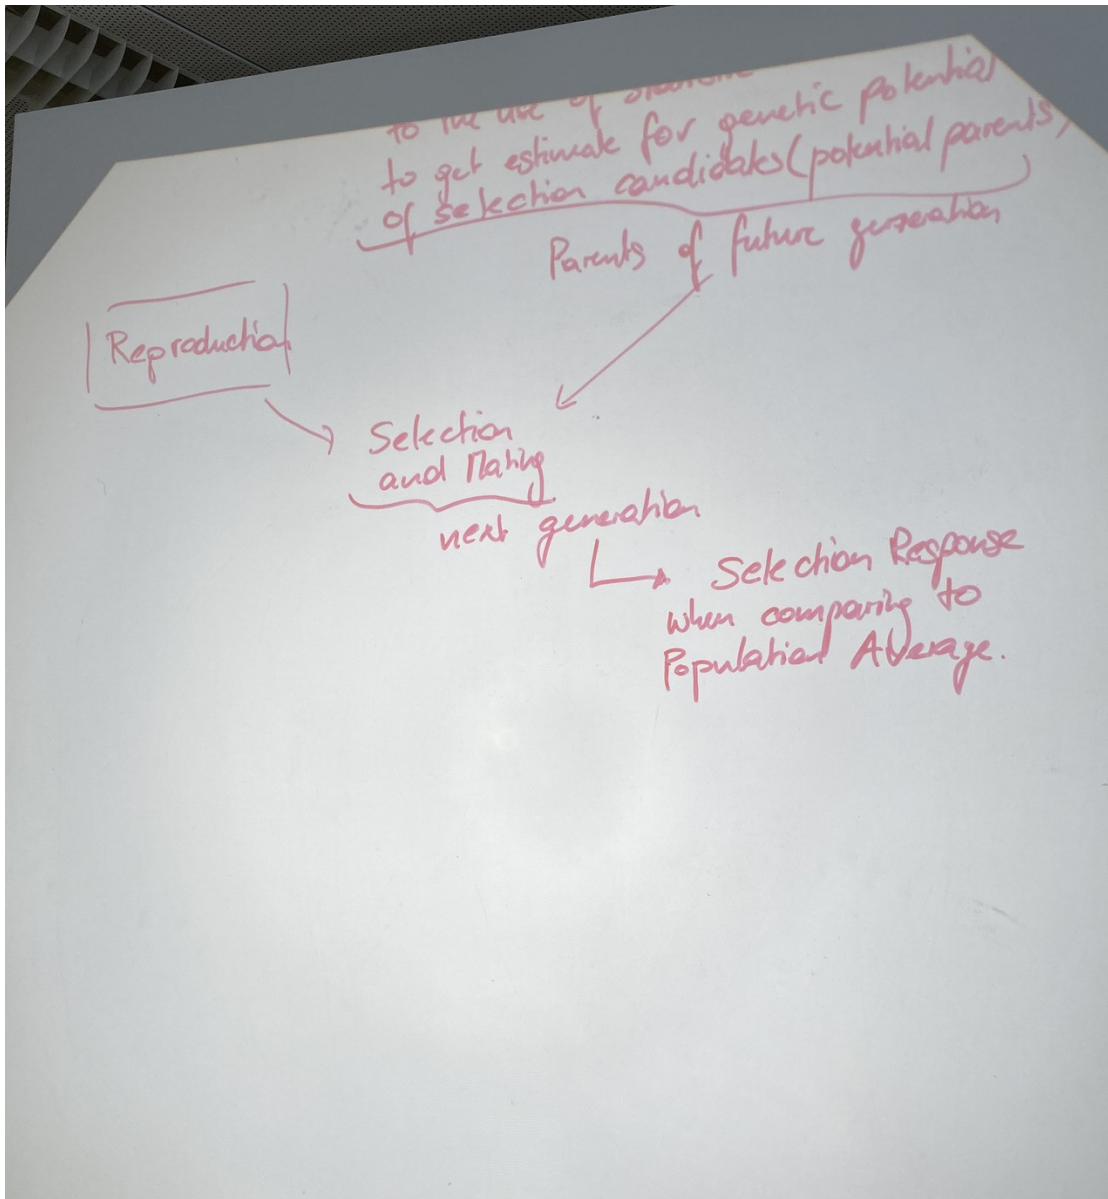 to the use of
to get estimate for genetic potential
of selection candidates (potential parents)
Parents of future generation
Reproduction
Selection
and Mating
next generation
Selection Response
when comparing to
Population Average.